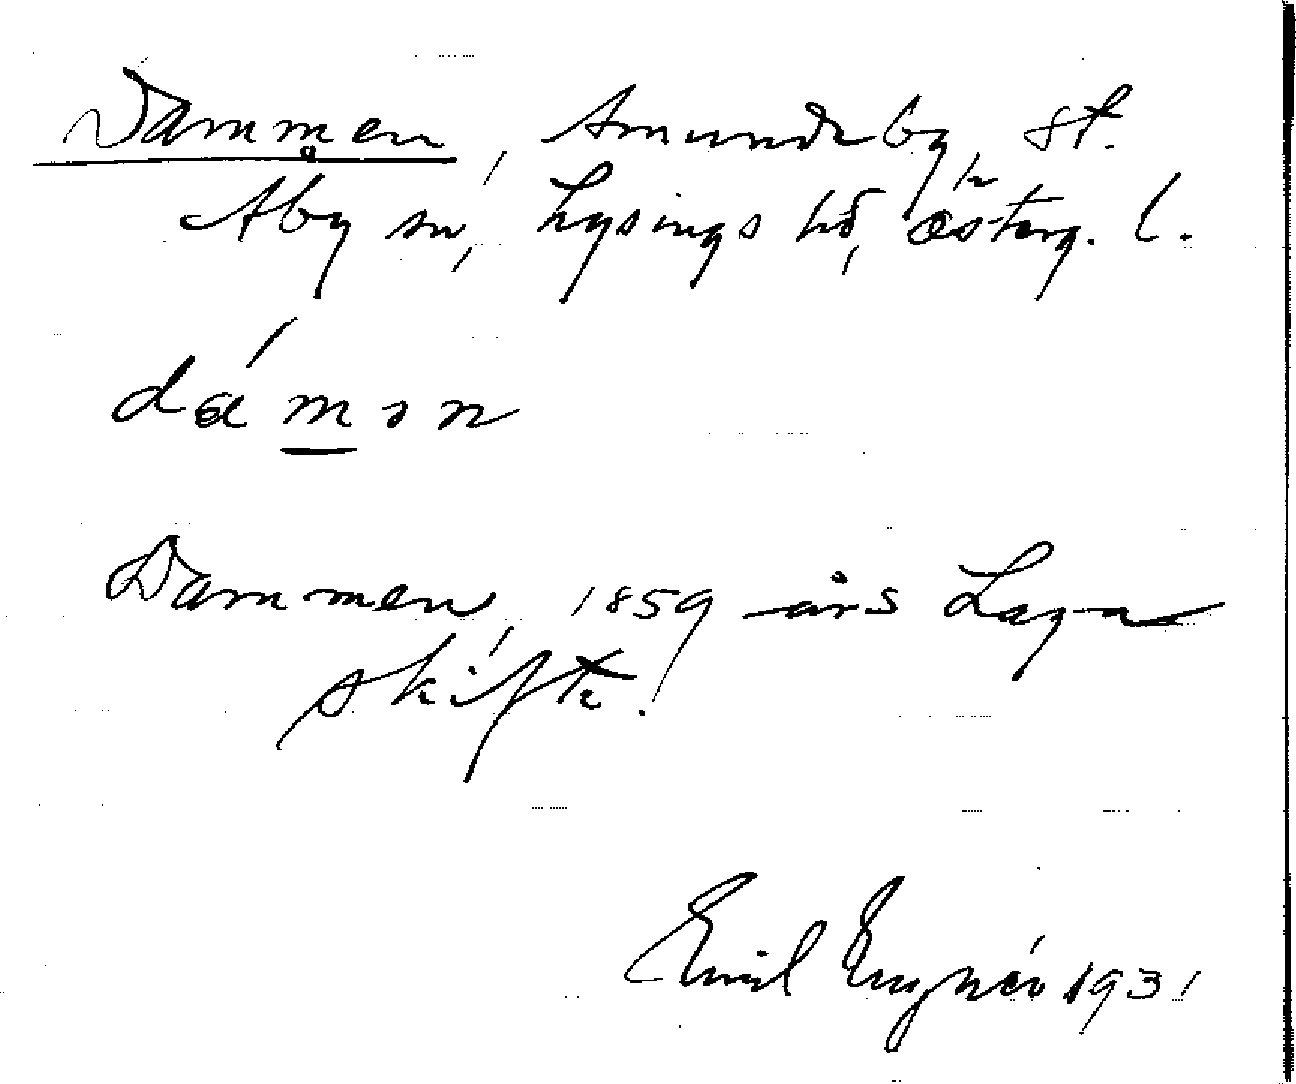 Dammen, Amundeby, St.
Åby sn, Lysings hd, Österg. l.
dámən
Dammen, 1859 års Laga
skifte.
Emil 1931